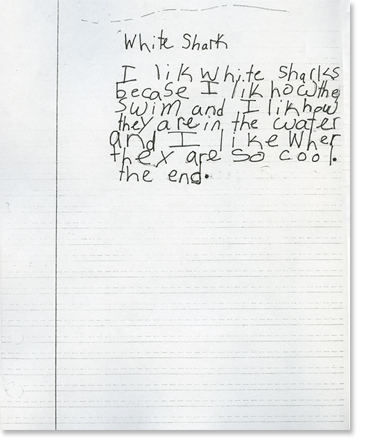 White Shark
I lik white sharks
becase I lik how the
swim and I lik how
they are in the water
and I like wher
they are so cool.
the end.